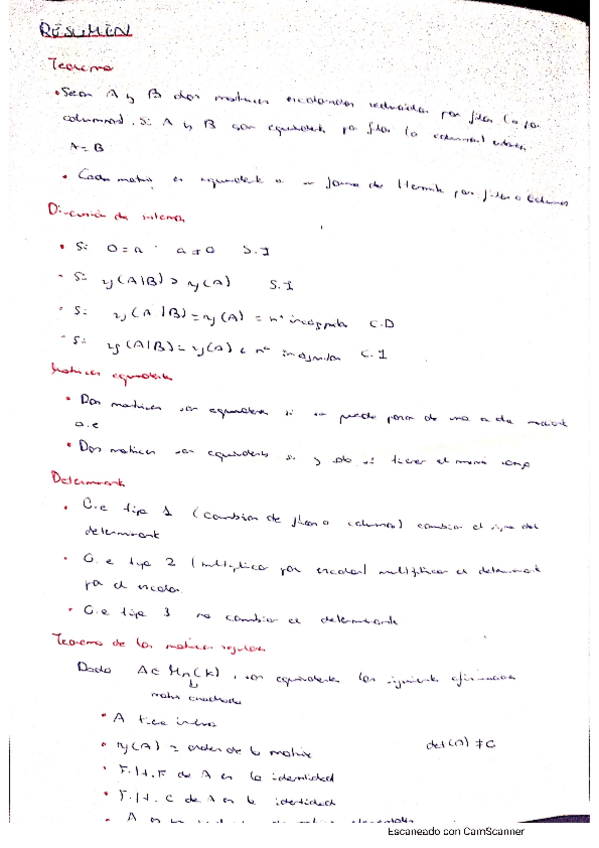 RESUMEN
Teorema
• Sean A y B dos matrices escalonadas reducidas por filas (o por
columnas). Si A y B son equivalentes por filas (o columnas) entonces
A = B
• Cada matriz es equivalente a una forma de Hermite por filas o columnas
Discusión de sistemas
• Si 0 = a a ≠ 0 S.I
• Si rg(A|B) > rg(A) S.I
• Si rg(A|B) = rg(A) = nº incógnitas C.D
• Si rg(A|B) = rg(A) < nº incógnitas C.I
Matrices equivalentes
• Dos matrices son equivalentes si se puede pasar de una a otra mediante
o.e
• Dos matrices son equivalentes si y solo si tienen el mismo rango
Determinante
• O.e tipo 1 (cambian de filas o columnas) cambian el signo del
determinante
• O.e tipo 2 (multiplicar por escalar) multiplican el determinante
por el escalar
• O.e tipo 3 no cambian el determinante
Teorema de las matrices regulares
Dada A ∈ Mn(K), son equivalentes las siguientes afirmaciones
matriz cuadrada
• A tiene inversa
• rg(A) = orden de la matriz det(A) ≠ 0
• F.H.F de A es la identidad
• F.H.C de A es la identidad
• A es
Escaneado con CamScanner